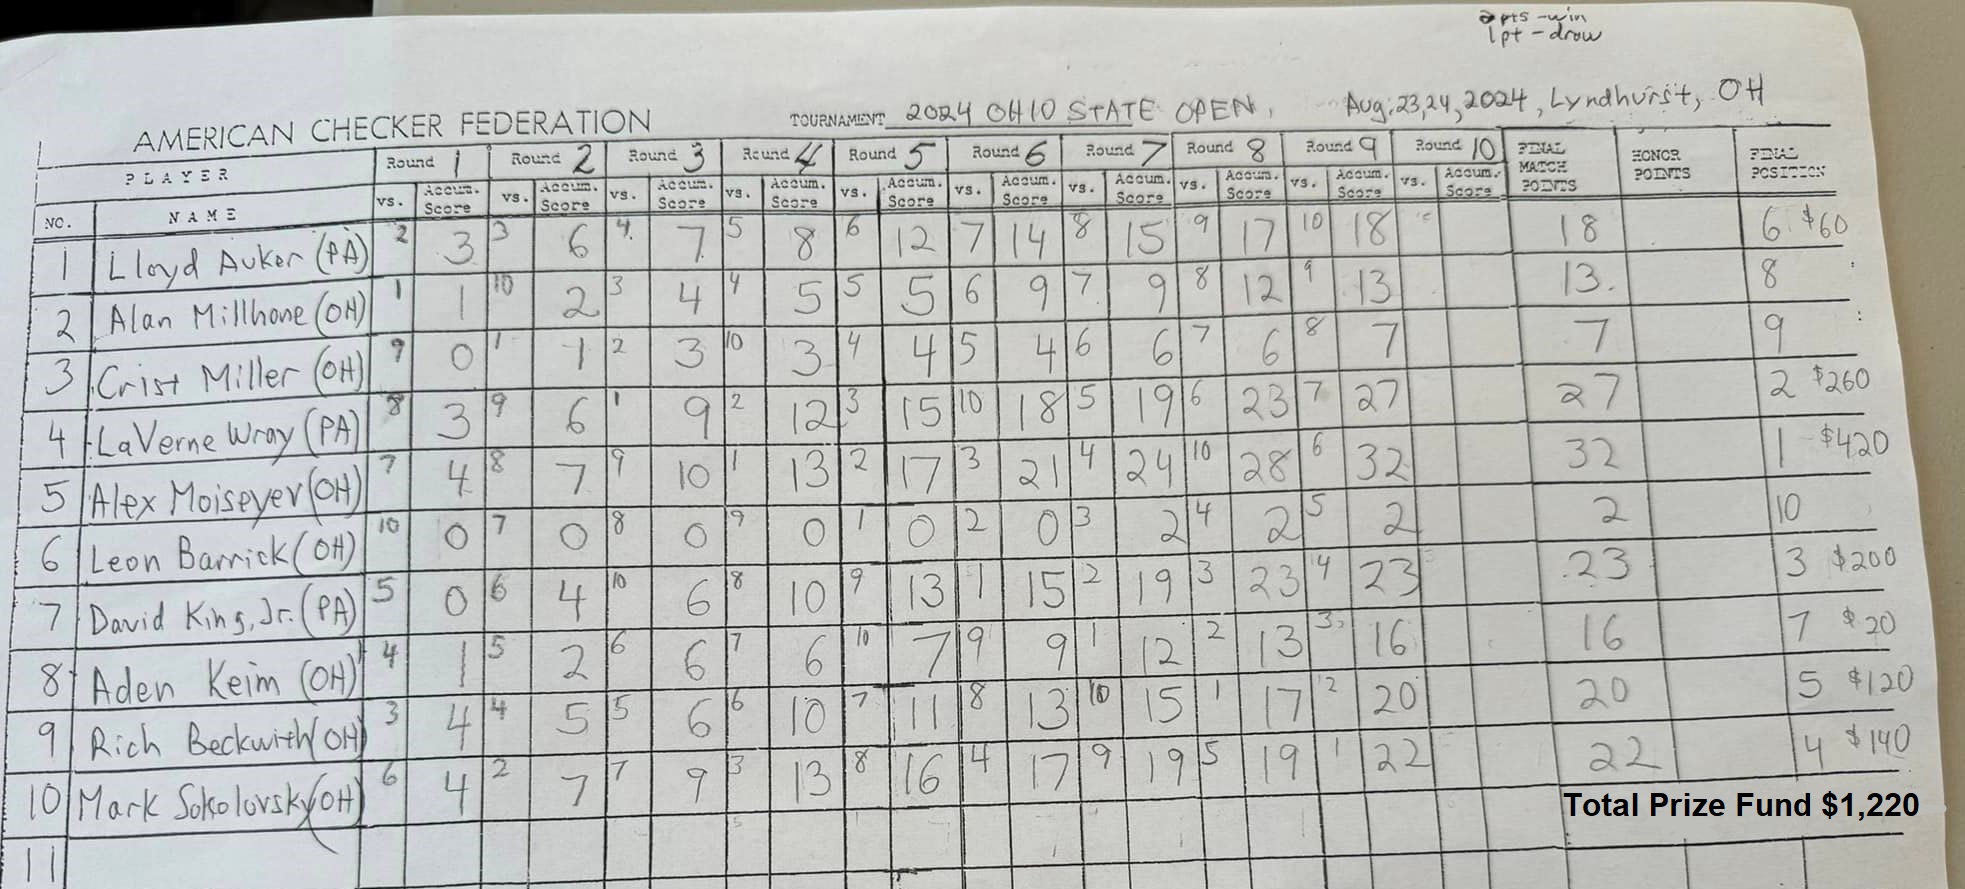 2 pts - win
1 pt - draw
AMERICAN CHECKER FEDERATION TOURNAMENT 2024 OHIO STATE OPEN, Aug. 23,24, 2024, Lyndhurst, OH
PLAYER Round 1 Round 2 Round 3 Round 4 Round 5 Round 6 Round 7 Round 8 Round 9 Round 10 FINAL MATCH POINTS HONOR POINTS FINAL POSITION
NO. NAME vs. Accum. Score vs. Accum. Score vs. Accum. Score vs. Accum. Score vs. Accum. Score vs. Accum. Score vs. Accum. Score vs. Accum. Score vs. Accum. Score vs. Accum. Score
1 Lloyd Auker (PA) 2 3 3 6 4 7 5 8 6 12 7 14 8 15 9 17 10 18 18 6 $60
2 Alan Millhone (OH) 1 1 10 2 3 4 4 5 5 5 6 9 7 9 8 12 9 13 13. 8
3 Crist Miller (OH) 9 0 1 1 2 3 10 3 4 4 5 4 6 6 7 6 8 7 7 9
4 LaVerne Wray (PA) 8 3 9 6 1 9 2 12 3 15 10 18 5 19 6 23 7 27 27 2 $260
5 Alex Moiseyev (OH) 7 4 8 7 9 10 1 13 2 17 3 21 4 24 10 28 6 32 32 1 $420
6 Leon Barrick (OH) 10 0 7 0 8 0 9 0 1 0 2 0 3 2 4 2 5 2 2 10
7 David King, Jr. (PA) 5 0 6 4 10 6 8 10 9 13 1 15 2 19 3 23 4 23 23 3 $200
8 Aden Keim (OH) 4 1 5 2 6 6 7 6 10 7 9 9 1 12 2 13 3 16 16 7 $20
9 Rich Beckwith (OH) 3 4 4 5 5 6 6 10 7 11 8 13 10 15 1 17 2 20 20 5 $120
10 Mark Sokolovsky (OH) 6 4 2 7 7 9 3 13 8 16 4 17 9 19 5 19 1 22 22 4 $140
Total Prize Fund $1,220
11